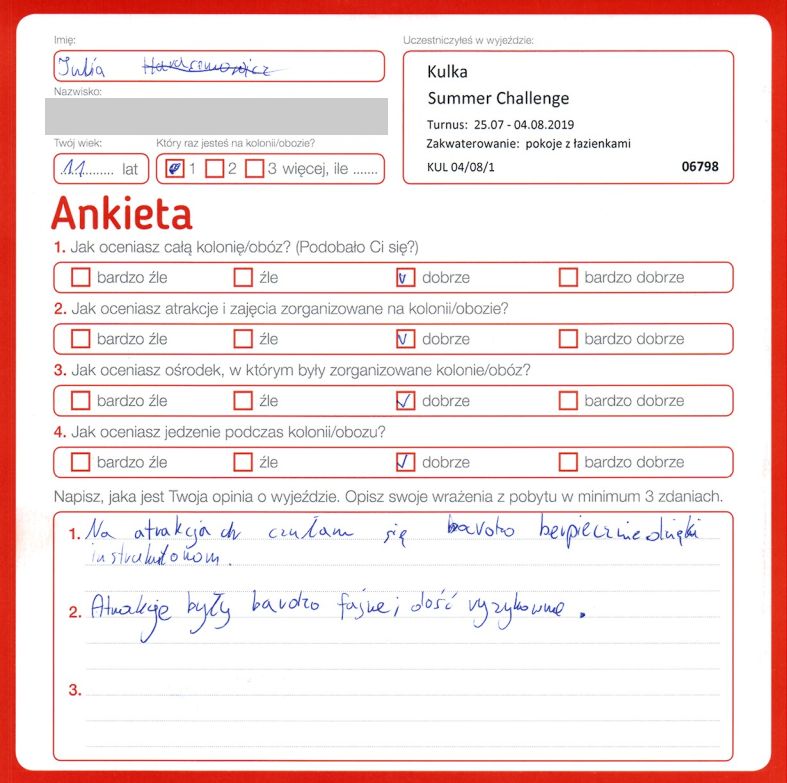 Imię:
Uczestniczyłeś w wyjeździe:
Julia
Kulka
Summer Challenge
Nazwisko:
Turnus: 25.07 - 04.08.2019
Zakwaterowanie: pokoje z łazienkami
KUL 04/08/1 06798
Twój wiek: Który raz jesteś na kolonii/obozie?
11........ lat 1 2 3 więcej, ile .......
Ankieta
1. Jak oceniasz całą kolonię/obóz? (Podobało Ci się?)
bardzo źle źle dobrze bardzo dobrze
2. Jak oceniasz atrakcje i zajęcia zorganizowane na kolonii/obozie?
bardzo źle źle dobrze bardzo dobrze
3. Jak oceniasz ośrodek, w którym były zorganizowane kolonie/obóz?
bardzo źle źle dobrze bardzo dobrze
4. Jak oceniasz jedzenie podczas kolonii/obozu?
bardzo źle źle dobrze bardzo dobrze
Napisz, jaka jest Twoja opinia o wyjeździe. Opisz swoje wrażenia z pobytu w minimum 3 zdaniach.
1. Na atrakcjach czułam się bardzo bezpiecznie dzięki
instruktorom.
2. Atrakcje były bardzo fajne i dość ryzykowne.
3.